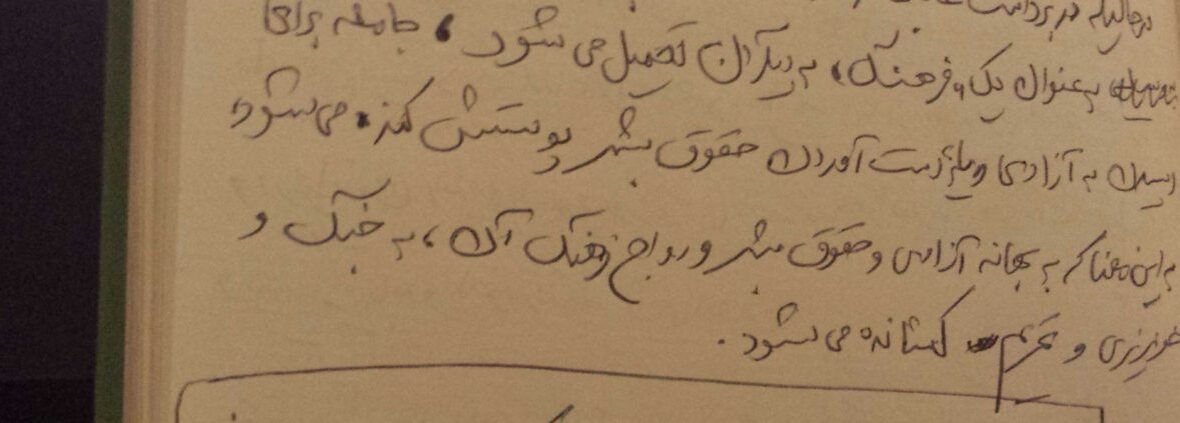 درحالیکه در برداشت
به عنوان یک "فرهنگ" به دیگران تحمیل می شود، جامعه برای
رسیدن به آزادی و یا بدست آوردن حقوق بشر پوستش کنده می شود،
به این معنا که به بهانه آزادی و حقوق بشر و رواج فرهنگ آن، به جنگ و
خونریزی و تحریم کشانده می شود.